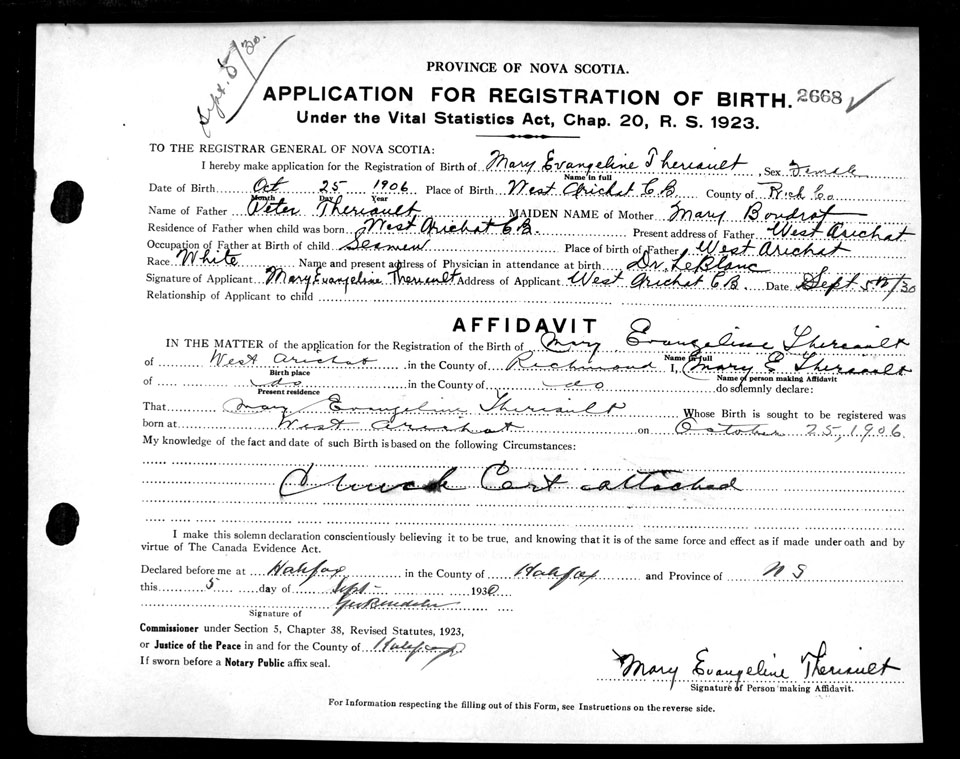 Sept. 5/30.
PROVINCE OF NOVA SCOTIA.
APPLICATION FOR REGISTRATION OF BIRTH. 2668
Under the Vital Statistics Act, Chap. 20, R. S. 1923.
TO THE REGISTRAR GENERAL OF NOVA SCOTIA:
I hereby make application for the Registration of Birth of Mary Evangeline Theriault, Sex Female
Name in full
Date of Birth Oct 25 1906 Place of Birth West Arichat C B County of Rich Co
Month Day Year
Name of Father Peter Theriault MAIDEN NAME of Mother Mary Boudrot
Residence of Father when child was born West Arichat C B. Present address of Father West Arichat
Occupation of Father at Birth of child Seamen Place of birth of Father West Arichat
Race White Name and present address of Physician in attendance at birth Dr. LeBlanc
Signature of Applicant Mary Evangeline Theriault Address of Applicant West Arichat C B. Date Sept 5th/30
Relationship of Applicant to child
AFFIDAVIT
IN THE MATTER of the application for the Registration of the Birth of Mary Evangeline Theriault
Name in full
of West Arichat in the County of Richmond I, Mary E Theriault
Birth place Name of person making Affidavit
of do in the County of do do solemnly declare:
Present residence
That Mary Evangeline Theriault Whose Birth is sought to be registered was
born at West Arichat on October 25, 1906.
My knowledge of the fact and date of such Birth is based on the following Circumstances:
Church Cert attached
I make this solemn declaration conscientiously believing it to be true, and knowing that it is of the same force and effect as if made under oath and by
virtue of The Canada Evidence Act.
Declared before me at Halifax in the County of Halifax and Province of N S
this 5 day of Sept 1930
Signature of
Commissioner under Section 5, Chapter 38, Revised Statutes, 1923,
or Justice of the Peace in and for the County of Halifax
If sworn before a Notary Public affix seal.
Mary Evangeline Theriault
Signature of Person making Affidavit.
For Information respecting the filling out of this Form, see Instructions on the reverse side.